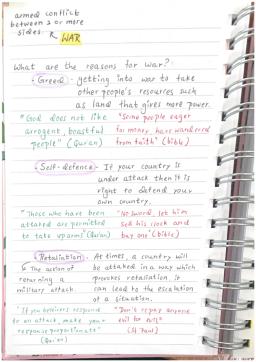 armed conflict
between 2 or more
sides. WAR
What are the reasons for war?
• Greed - getting into war to take
other people's resources such
as land that gives more power.
"God does not like
arrogent, boastful
people" (Quran)
"Some people eager
for money have wandered
from faith" (bible)
• Self-defence - If your country is
under attack then it is
right to defend your
own country.
"Those who have been
attacked are permitted
to take up arms" (Quran)
"No sword, let him
sell his cloak and
buy one" (bible)
• Retaliation. At times, a country will
↳ The action of
returning a
military attack.
be attacked in a way which
provokes retaliation, it
can lead to the escalation
of a situation.
"If you believers respond
to an attack, make your
response proportionate"
(Qur'an)
"Don't repay anyone
evil for evil"
(St Paul)